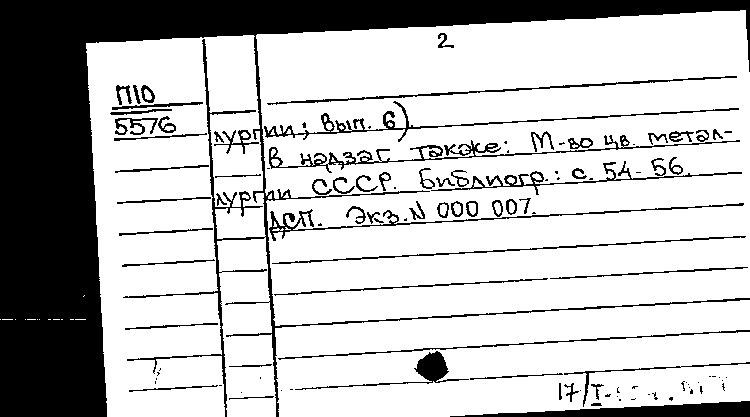 2
П10
5576
лургии; вып. 6).
В надзаг. также: М-во цв. метал-
лургии СССР. Библиогр.: с. 54-56.
ДСП. Экз. N 000 007.
17/I-